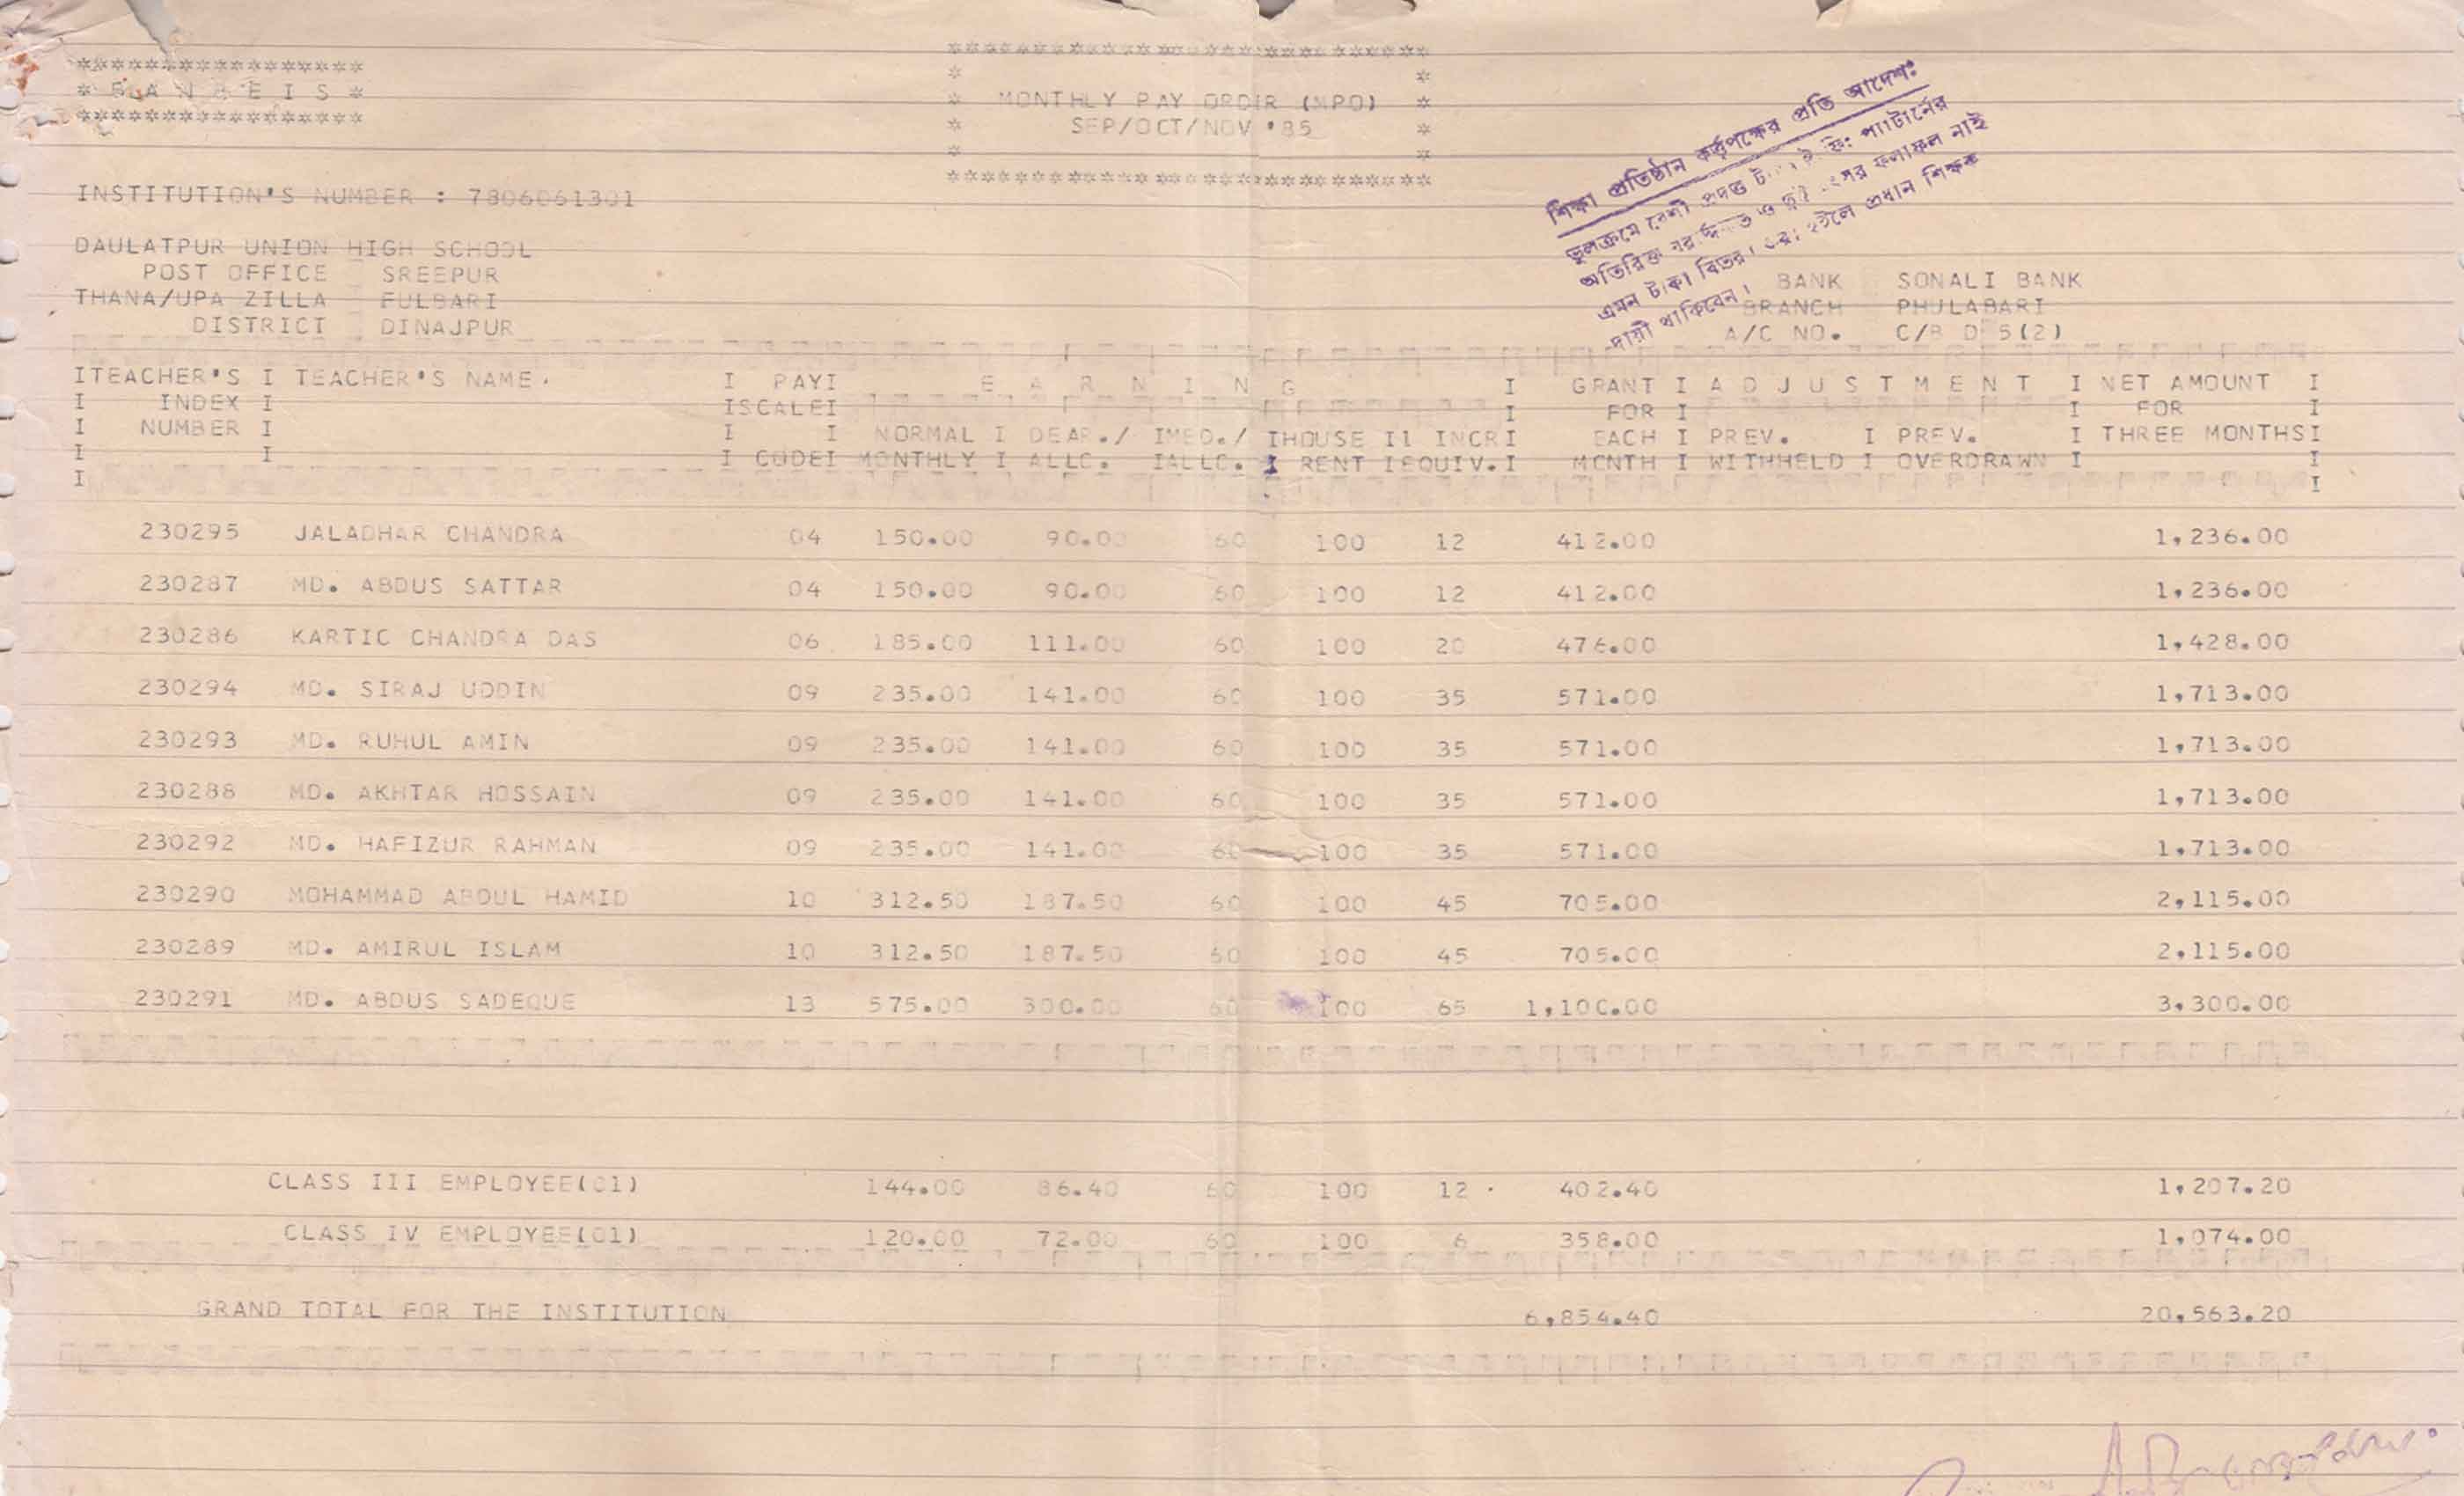 *****************
* B A N B E I S *
*****************
MONTHLY PAY ORDIR (MPO)
SEP/OCT/NOV '85
শিক্ষা প্রতিষ্ঠান কর্তৃপক্ষের প্রতি আদেশ:
ভুলক্রমে বেশী প্রদত্ত প্যাটার্নের
অতিরিক্ত ও ফলাফল নাই
এমন টাকা হইলে প্রধান শিক্ষক
দায়ী থাকিবেন।
INSTITUTION'S NUMBER : 7806061301
DAULATPUR UNION HIGH SCHOOL
POST OFFICE SREEPUR
THANA/UPA ZILLA FULBARI
DISTRICT DINAJPUR
BANK SONALI BANK
BRANCH PHULABARI
A/C NO. C/B D 5(2)
ITEACHER'S I TEACHER'S NAME. I PAYI E A R N I N G I GRANT I A D J U S T M E N T I NET AMOUNT I
I INDEX I ISCALEI I FOR I I FOR I
I NUMBER I I I NORMAL I DEAR./ IMED./ IHOUSE I1 INCRI EACH I PREV. I PREV. I THREE MONTHSI
I I I CODEI MONTHLY I ALLC. IALLC. I RENT IEQUIV.I MCNTH I WITHHELD I OVERDRAWN I I
I I
230295 JALADHAR CHANDRA 04 150.00 90.00 60 100 12 412.00 1,236.00
230287 MD. ABDUS SATTAR 04 150.00 90.00 60 100 12 412.00 1,236.00
230286 KARTIC CHANDRA DAS 06 185.00 111.00 60 100 20 476.00 1,428.00
230294 MD. SIRAJ UDDIN 09 235.00 141.00 60 100 35 571.00 1,713.00
230293 MD. RUHUL AMIN 09 235.00 141.00 60 100 35 571.00 1,713.00
230288 MD. AKHTAR HOSSAIN 09 235.00 141.00 60 100 35 571.00 1,713.00
230292 MD. HAFIZUR RAHMAN 09 235.00 141.00 60 100 35 571.00 1,713.00
230290 MOHAMMAD ABDUL HAMID 10 312.50 187.50 60 100 45 705.00 2,115.00
230289 MD. AMIRUL ISLAM 10 312.50 187.50 60 100 45 705.00 2,115.00
230291 MD. ABDUS SADEQUE 13 575.00 300.00 60 100 65 1,100.00 3,300.00
CLASS III EMPLOYEE(01) 144.00 86.40 60 100 12 402.40 1,207.20
CLASS IV EMPLOYEE(01) 120.00 72.00 60 100 6 358.00 1,074.00
GRAND TOTAL FOR THE INSTITUTION 6,854.40 20,563.20